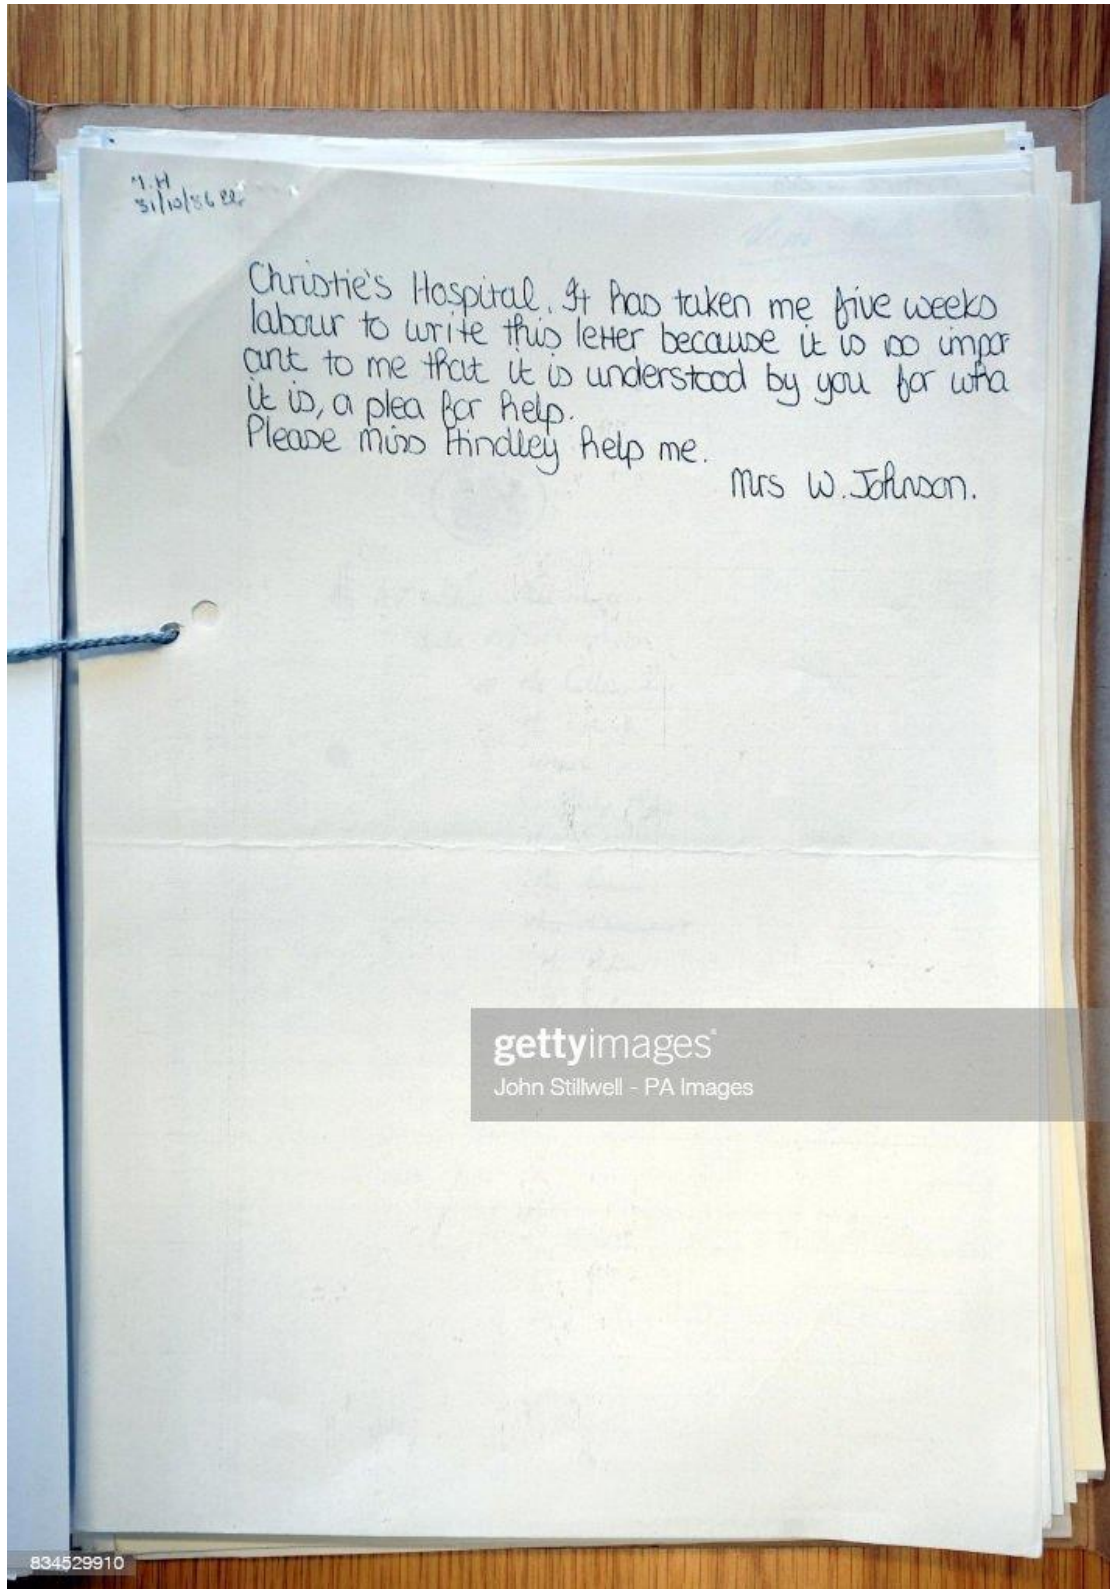 M.H
31/10/86
Christie's Hospital. It has taken me five weeks
labour to write this letter because it is so impor
ant to me that it is understood by you for wha
it is, a plea for help.
Please Miss Hindley help me.
Mrs W. Johnson.
gettyimages®
John Stillwell - PA Images
834529910